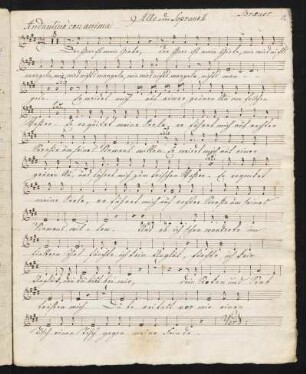 Andantino con anima
Der Herr ist mein Hirte, der Herr ist mein Hirte, mir wird nichts
mangeln, mir wird nichts mangeln, mir wird nichts mangeln, nichts man-
geln. Er weidet mich auf einer grünen Au am frischen
Wasser. Er erquicket meine Seele, er führet mich auf rechter
Straße um seines Namens willen. Er weidet mich auf einer
grünen Au, und führet mich zum frischen Wasser. Er erquicket
meine Seele, er führet mich auf rechter Straße um seines
Namens willen. Und ob ich schon wanderte im
finstern Thal, fürchte ich kein Unglück, fürchte ich kein
Unglück, du bist bei mir, dein Stecken und Stab
trösten mich. Du bereitest vor mir einen
Tisch gegen meine Feinde.